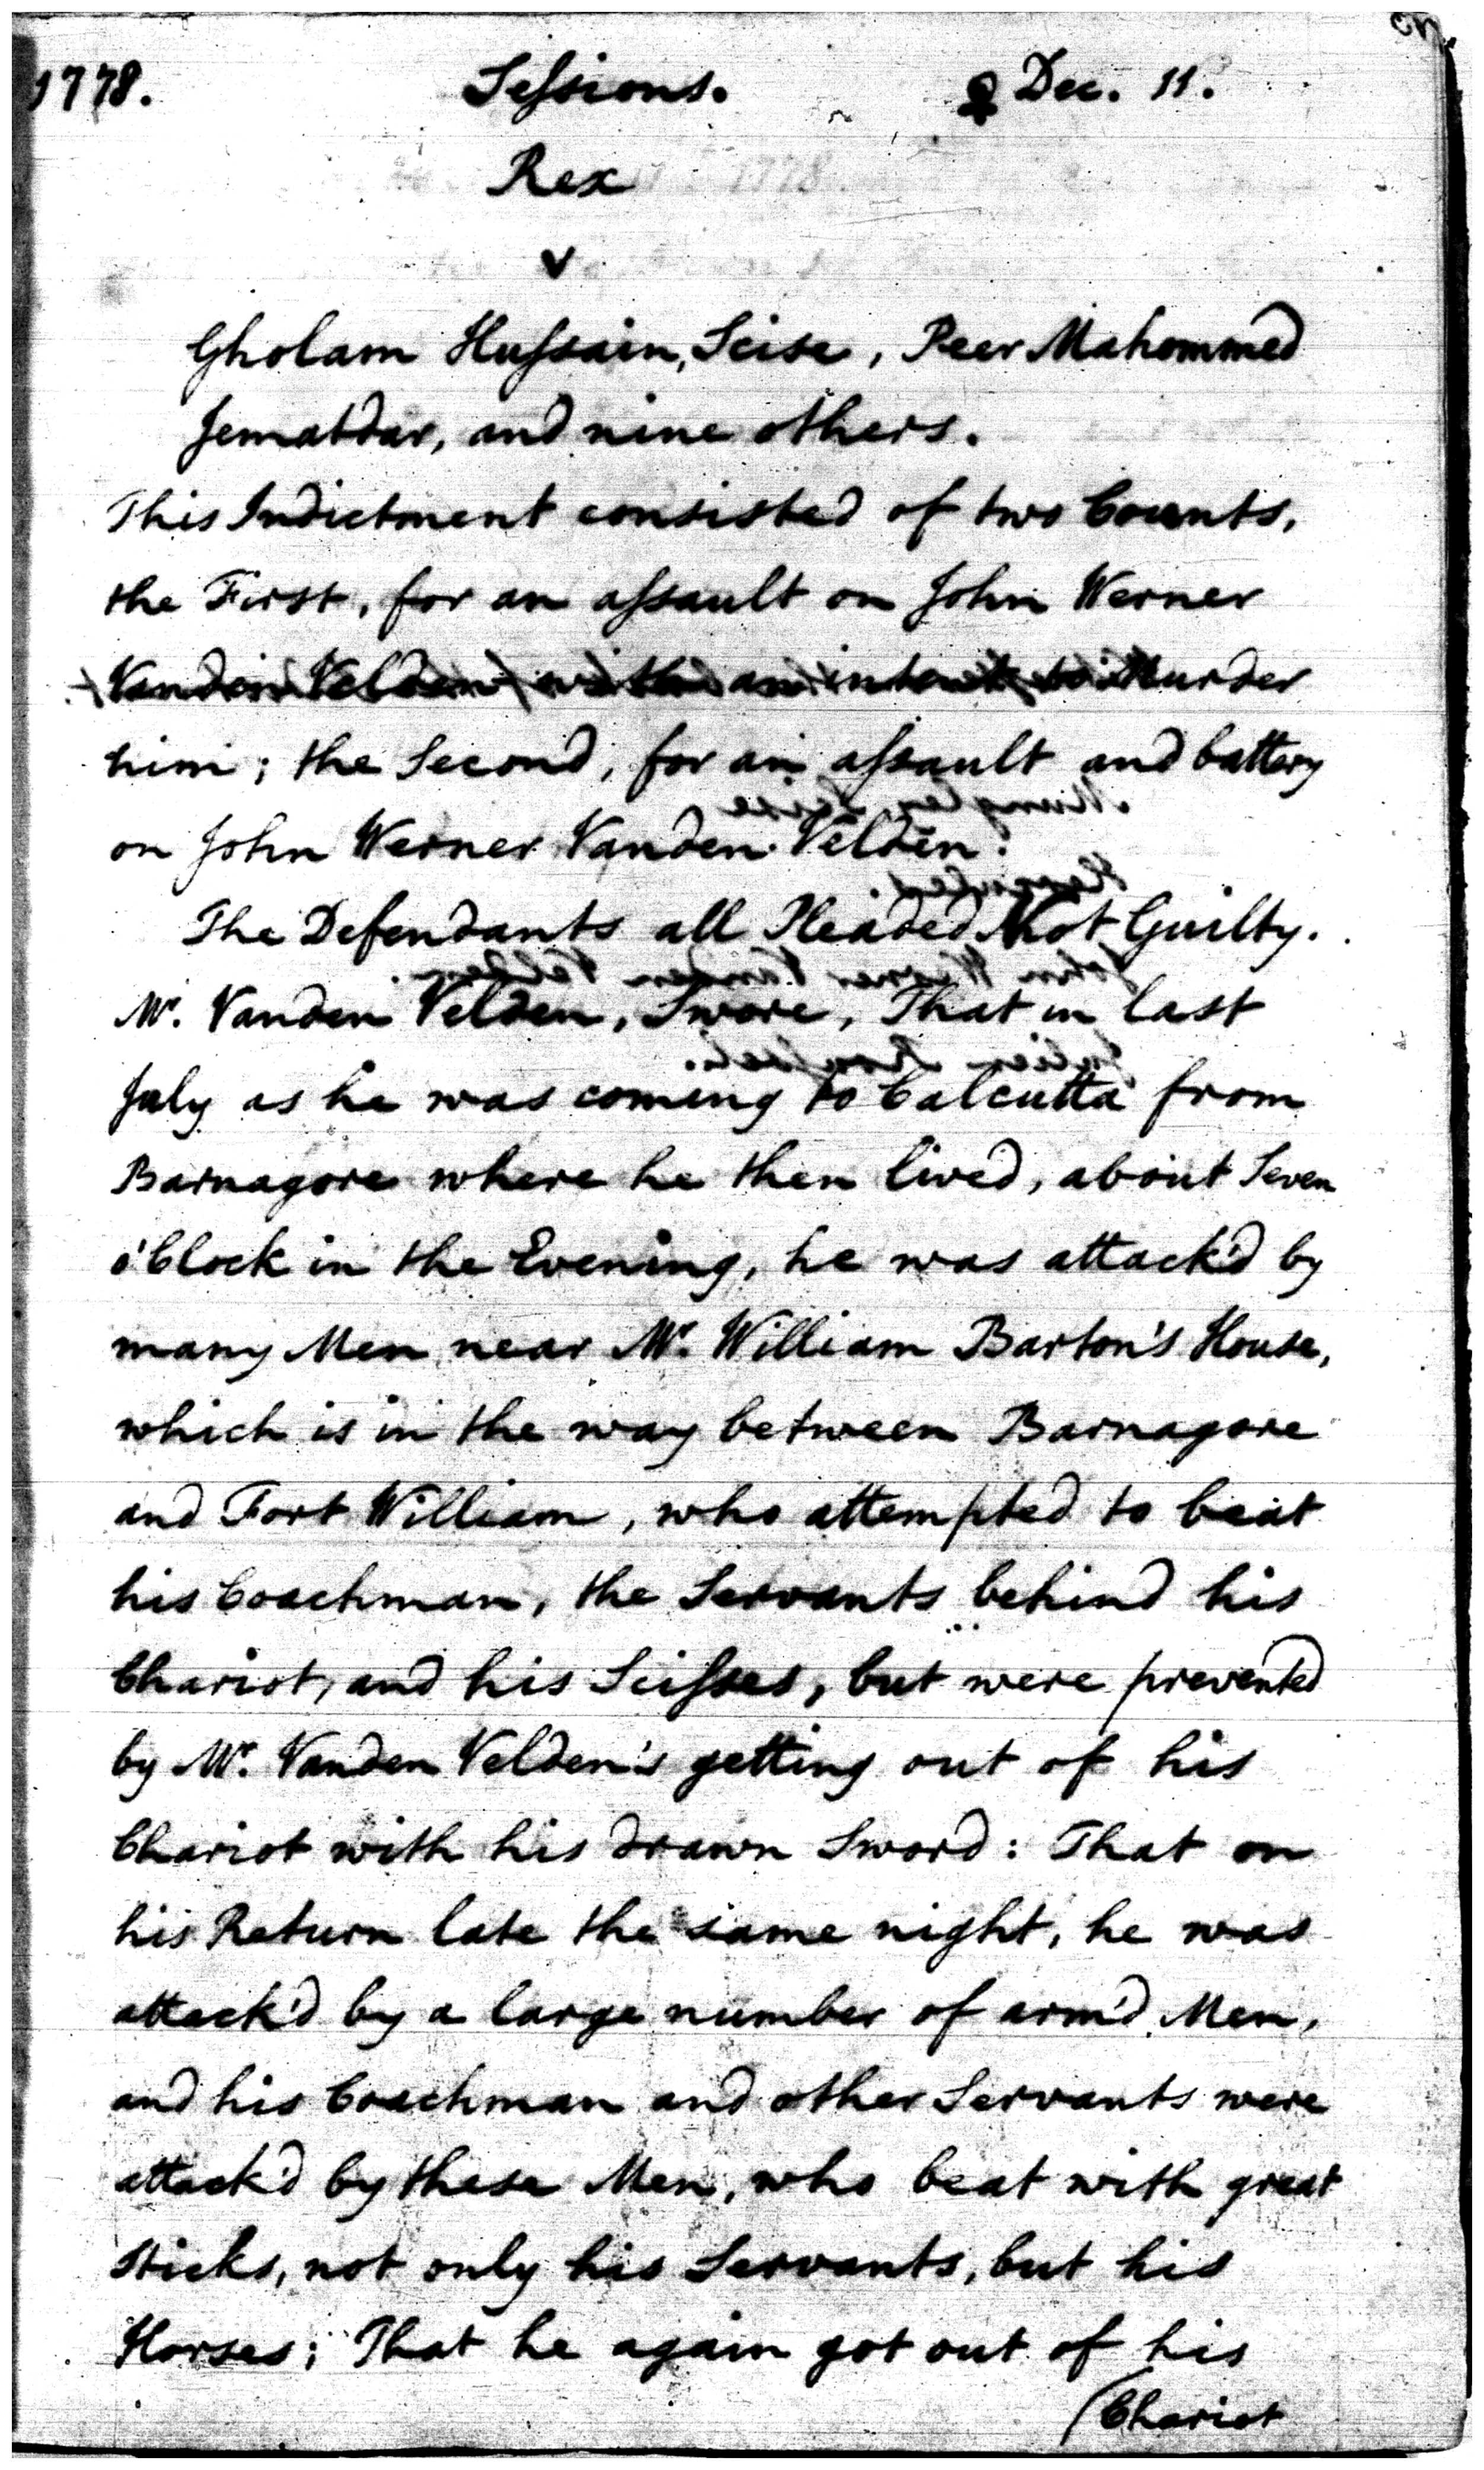 1778. Sessions. ♀ Dec. 11.
Rex
v
Gholam Hussain, Seise, Peer Mahommed
Jematdar, and nine others.
This Indictment consisted of two Counts,
the First, for an assault on John Werner
Vanden Velden, with an intent to Murder
him; the Second, for an assault and battery
on John Werner Vanden Velden.
The Defendants all Pleaded Not Guilty.
Mr. Vanden Velden, Swore, That in last
July as he was coming to Calcutta from
Barnagore where he then lived, about Seven
o'Clock in the Evening, he was attack'd by
many Men near Mr. William Barton's House,
which is in the way between Barnagore
and Fort William, who attempted to beat
his Coachman, the Servants behind his
Chariot, and his Seisses, but were prevented
by Mr. Vanden Velden's getting out of his
Chariot with his drawn Sword: That on
his Return late the same night, he was
attack'd by a large number of arm'd Men,
and his Coachman and other Servants were
attack'd by these Men, who beat with great
Sticks, not only his Servants, but his
Horses; That he again got out of his
(Chariot